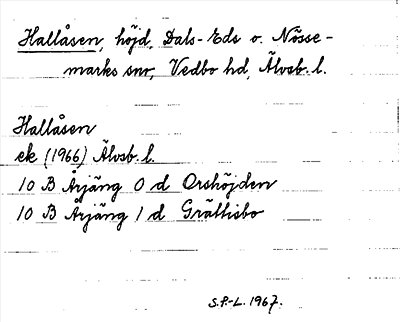 Hallåsen, höjd, Dals-Eds o. Nösse-
marks snr, Vedbo hd, Älvsb. l.
Hallåsen
ek (1966) Älvsb. l.
10 B Årjäng 0 d Orshöjden
10 B Årjäng 1 d Grättisbo
S.P.-L. 1967.